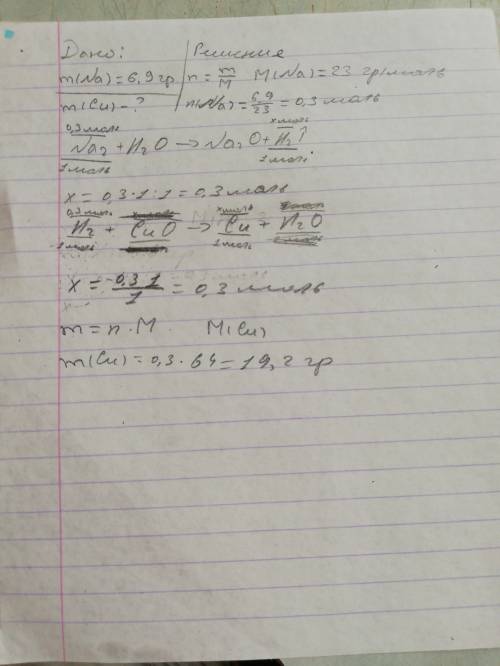 Дано:
Решение
m(Na)=6,9гр
n=m/M M(Na)=23 гр/моль
m(Cu)-?
n(Na)=6,9/23=0,3моль
0,3моль хмоль
Na₂+H₂O→Na₂O+H₂↑
1моль 1моль
x=0,3·1:1=0,3моль
0,3моль хмоль
H₂+CuO→Cu+H₂O
1моль 1моль
x=0,3·1/1=0,3моль
m=n·M M(Cu)
m(Cu)=0,3·64=19,2гр